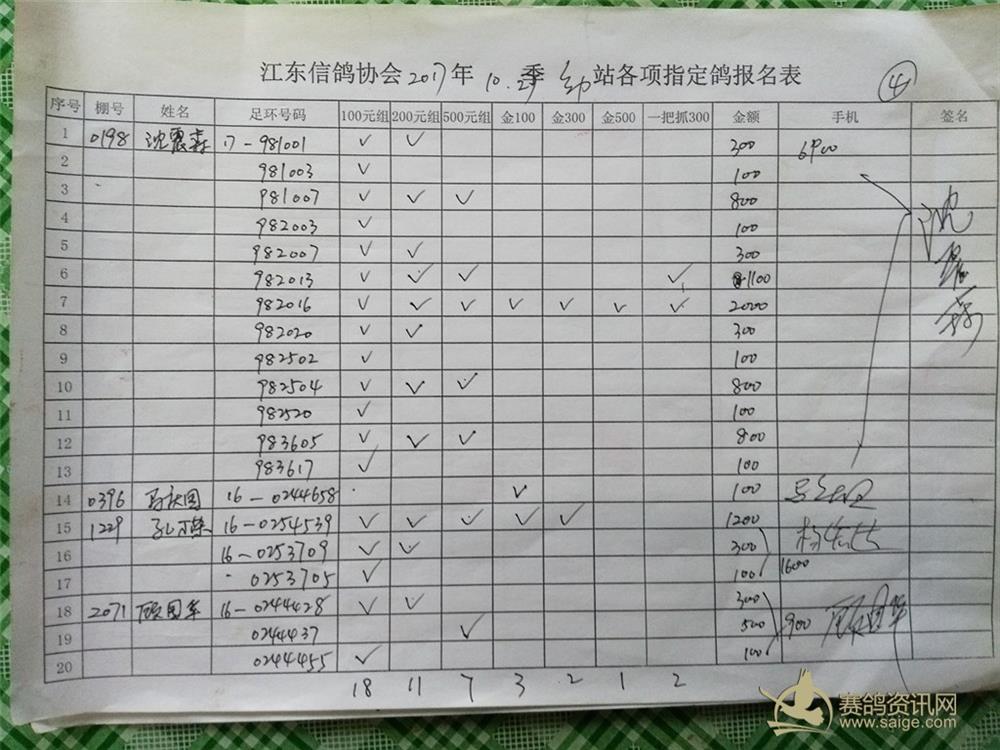 江东信鸽协会2017年10.2季幼站各项指定鸽报名表
④
序号 棚号 姓名 足环号码 100元组 200元组 500元组 金100 金300 金500 一把抓300 金额 手机 签名
1 0198 沈震森 17-981001 ✓ ✓ 300 6900
2 981003 ✓ 100
3 981007 ✓ ✓ ✓ 800
4 982003 ✓ 100
5 982007 ✓ ✓ 300
6 982013 ✓ ✓ ✓ ✓ 1100
7 982016 ✓ ✓ ✓ ✓ ✓ ✓ ✓ 2000
8 982020 ✓ ✓ 300
9 982502 ✓ 100
10 982504 ✓ ✓ ✓ 800
11 982520 ✓ 100
12 983605 ✓ ✓ ✓ 800
13 983617 ✓ 100
14 0396 16-0244658 ✓ 100
15 1229 16-0254539 ✓ ✓ ✓ ✓ ✓ 1200
16 16-0253709 ✓ ✓ 300
17 0253705 ✓ 100 1600
18 2071 顾国华 16-0244428 ✓ ✓ 300
19 0244437 ✓ 500 900 顾国华
20 0244455 ✓ 100
18 11 7 3 2 1 2
沈震森
赛鸽资讯网
www.saige.com